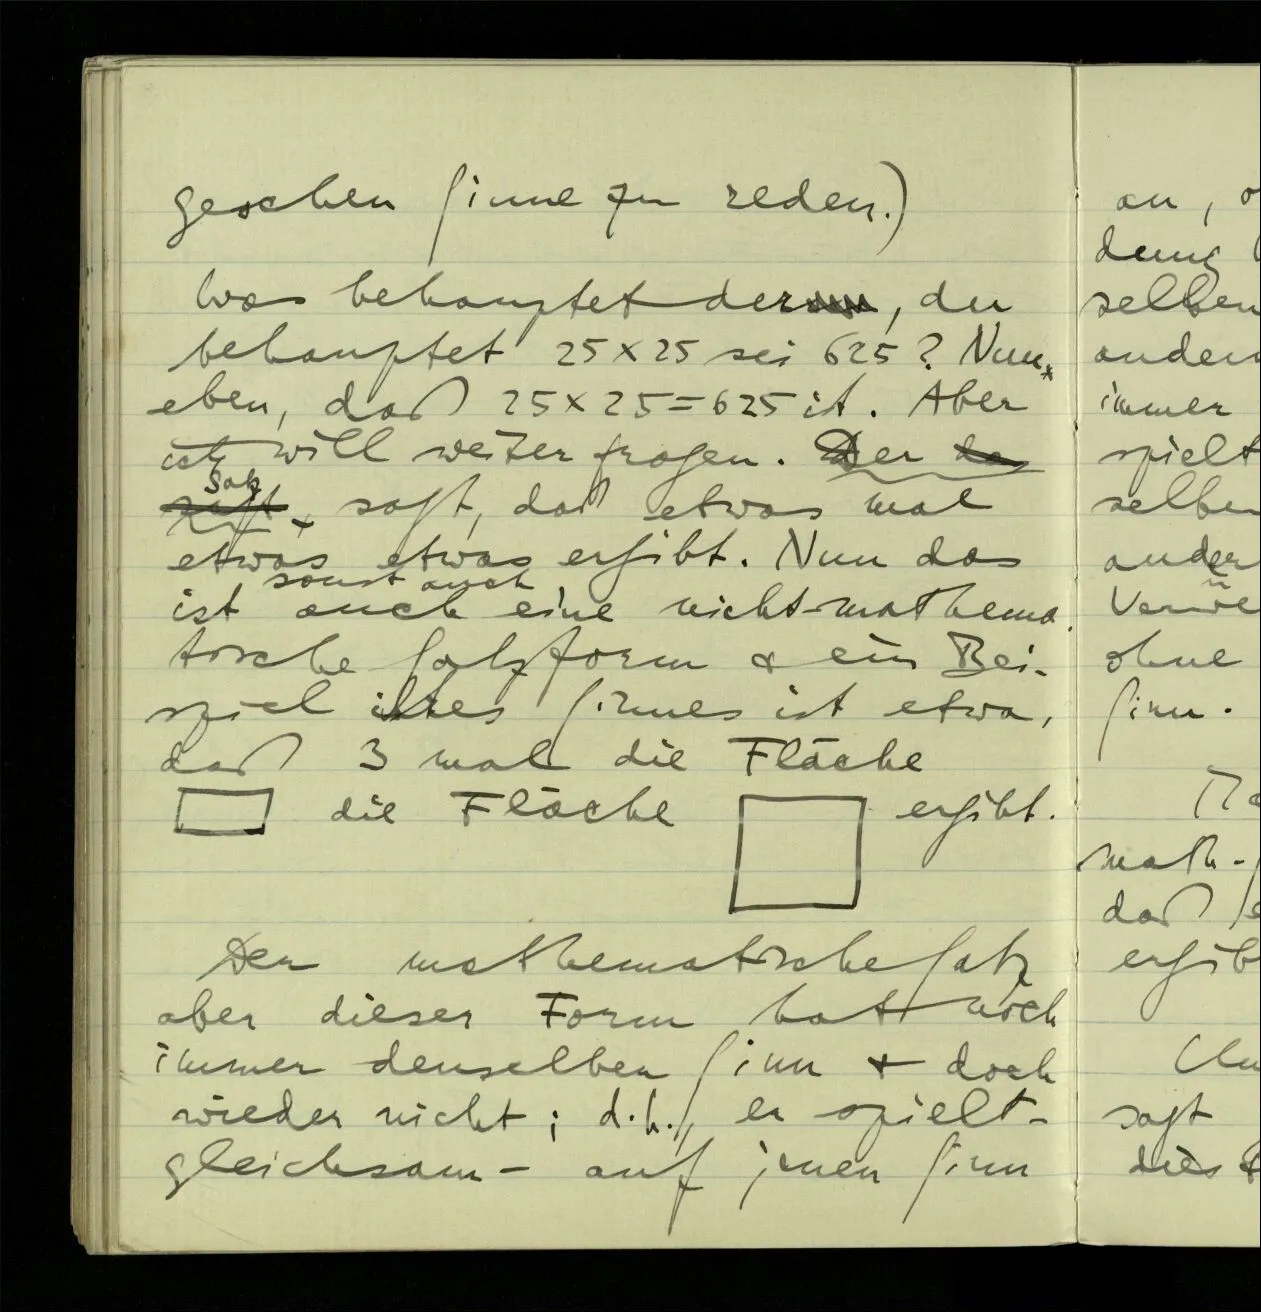 geschen Sinne zu reden.)
Was behauptet der, der
behauptet 25 × 25 sei 625? Nun,
eben, daß 25 × 25 = 625 ist. Aber
ich will weiter fragen. Der
Satz
sagt, daß etwas mal
etwas etwas ergibt. Nun das
sonst auch
ist auch eine nicht-mathema-
tische Satzform & ein Bei-
spiel ihres Sinnes ist etwa,
daß 3 mal die Fläche
die Fläche ergibt.
Der mathematische Satz
aber dieser Form hat noch
immer denselben Sinn & doch
wieder nicht; d.h., er spielt –
gleichsam – auf jenen Sinn
an,
dung
selben
andern
immer
spielt
selben
ander
ohne
Sinn.
math-
daß
ergib
sagt
dies